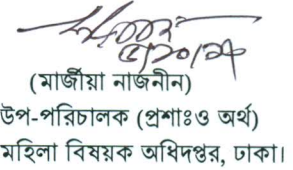 (মার্জীয়া নাজনীন)
উপ-পরিচালক (প্রশাঃও অর্থ)
মহিলা বিষয়ক অধিদপ্তর, ঢাকা।